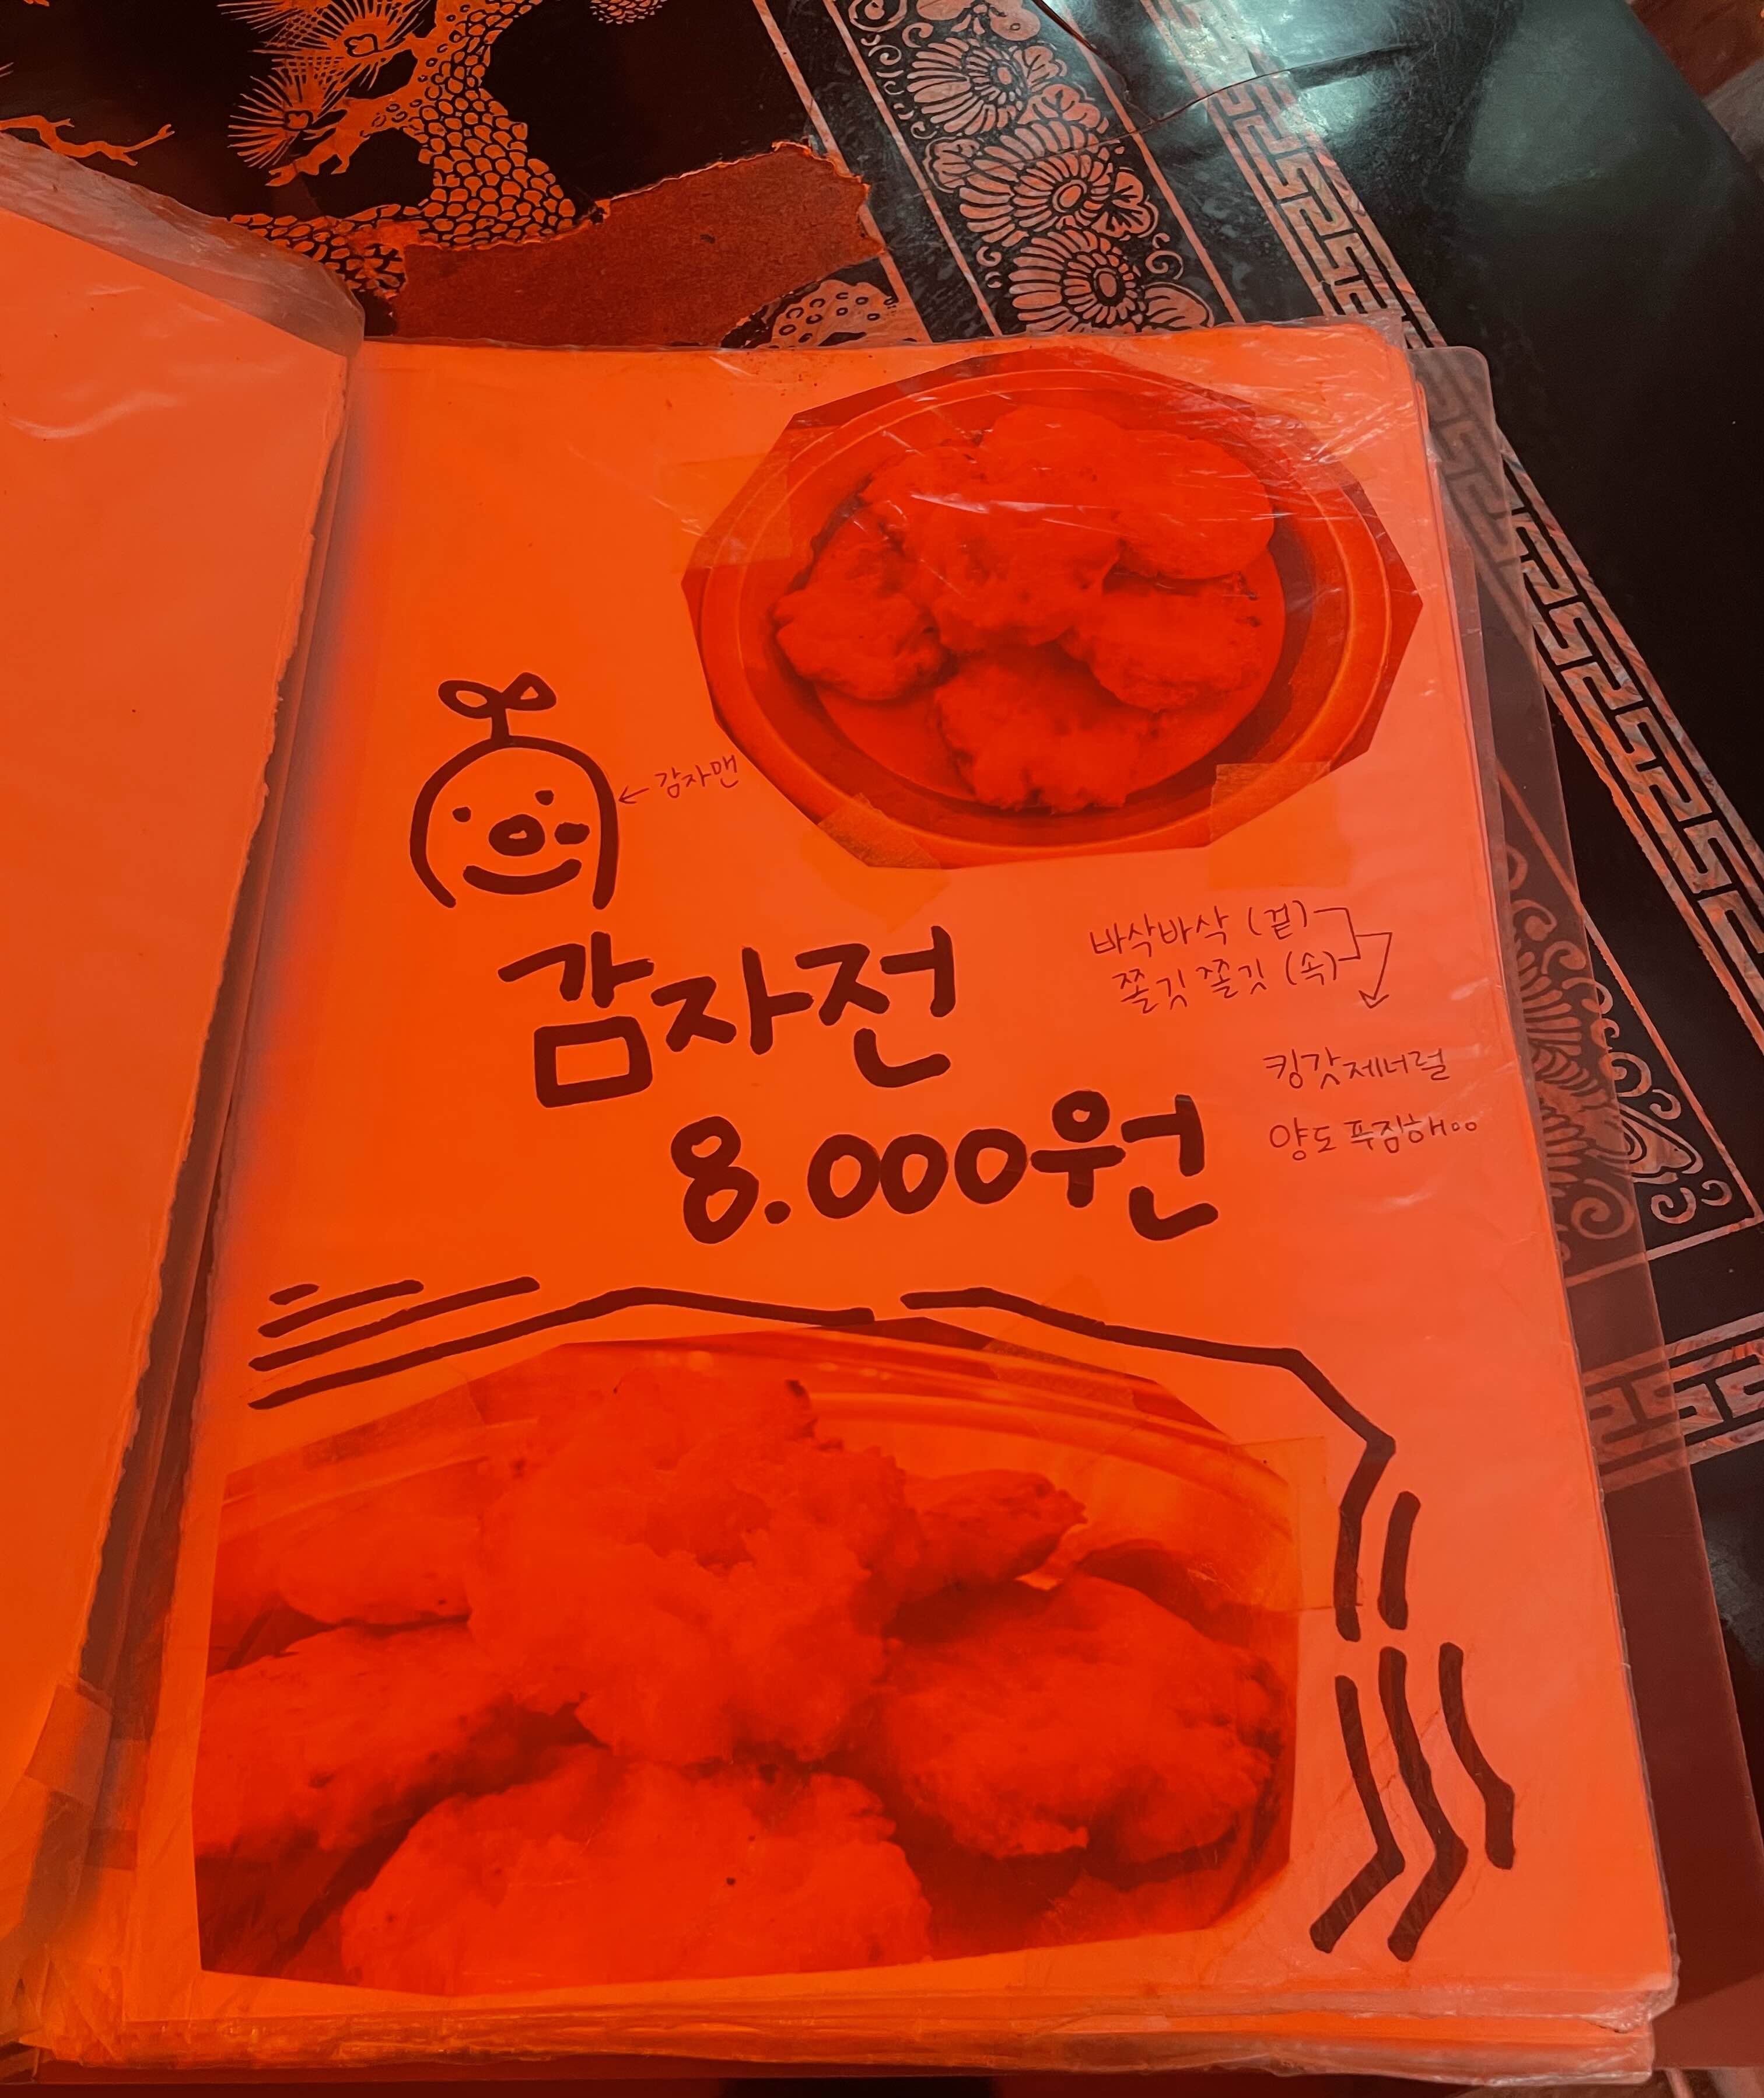 ← 감자맨
감자전
8.000원
바삭바삭 (겉)
쫄깃쫄깃 (속)
킹갓제너럴
양도 푸짐해ㅇㅇ